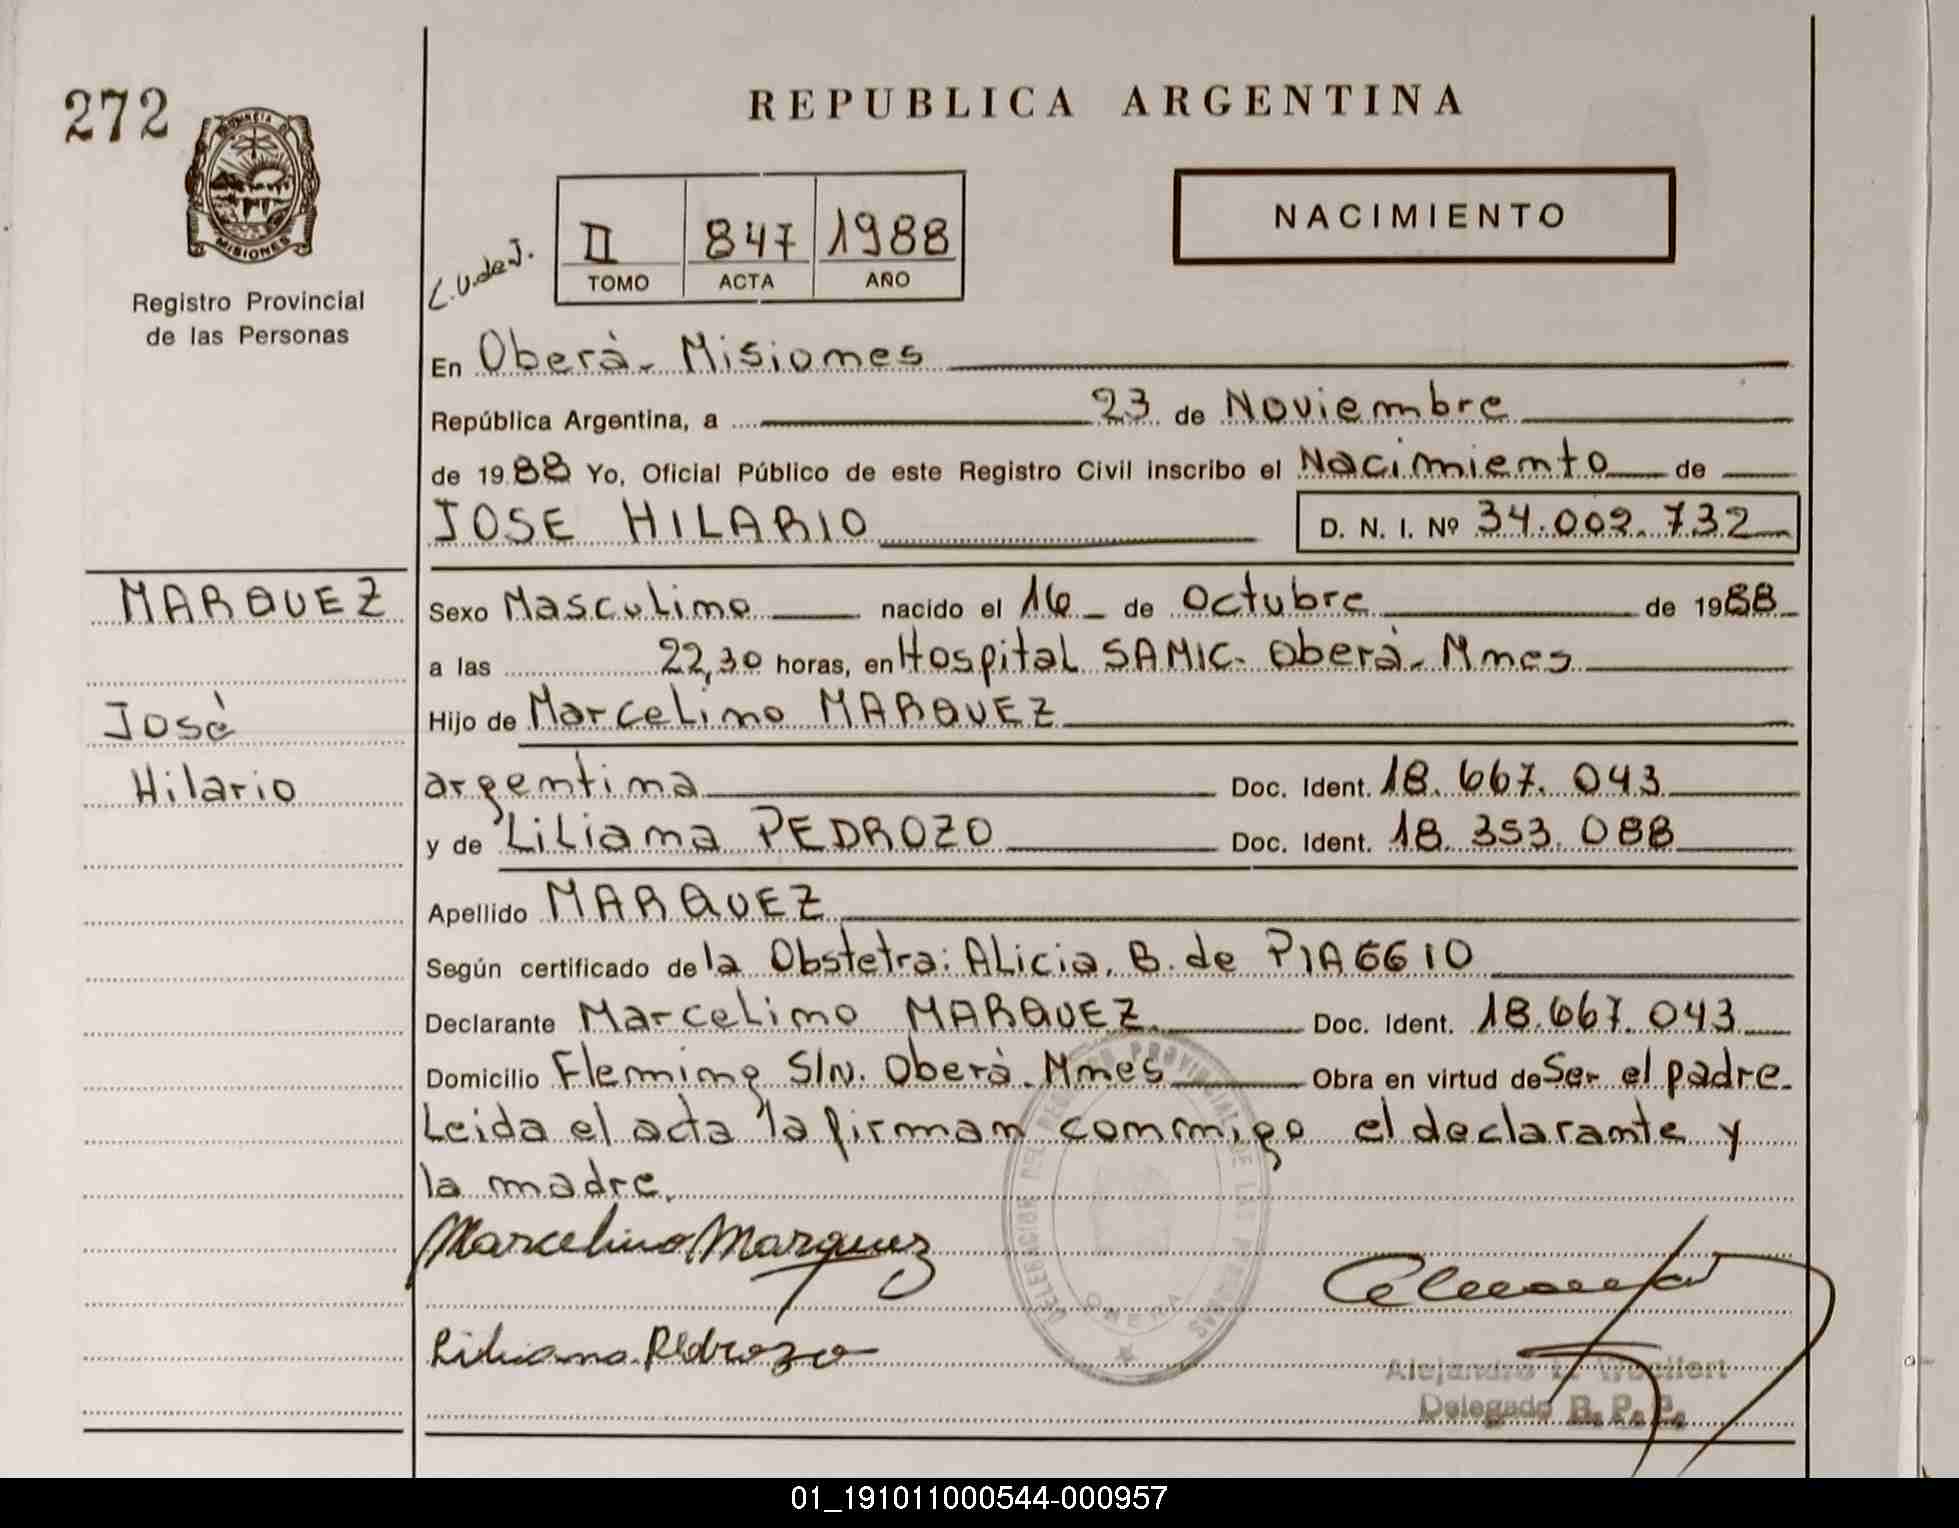 272
REPUBLICA ARGENTINA
PROVINCIA DE
MISIONES
Registro Provincial
de las Personas
L.U.deJ.
II 847 1988
TOMO ACTA AÑO
NACIMIENTO
En Oberá- Misiones
República Argentina, a 23 de Noviembre
de 1988 Yo, Oficial Público de este Registro Civil inscribo el Nacimiento de
JOSE HILARIO D. N. I. Nº 34.002.732
MARQUEZ
José
Hilario
Sexo Masculino nacido el 16 de Octubre de 1988
a las 22,30 horas, en Hospital SAMIC. Oberá- Mnes
Hijo de Marcelino MARQUEZ
argentina Doc. Ident. 18.667.043
y de Liliana PEDROZO Doc. Ident. 18.353.088
Apellido MARQUEZ
Según certificado de la Obstetra: Alicia. B. de PIAGGIO
Declarante Marcelino MARQUEZ Doc. Ident. 18.667.043
Domicilio Fleming S/N. Oberá. Mnes Obra en virtud de Ser el padre.
Leida el acta la firman conmigo el declarante y
la madre.
Marcelino Marquez
Liliana Pedrozo
DELEGACION DEL REGISTRO PROVINCIAL DE LAS PERSONAS
OBERA
Delegado R. P. P.
01_191011000544-000957